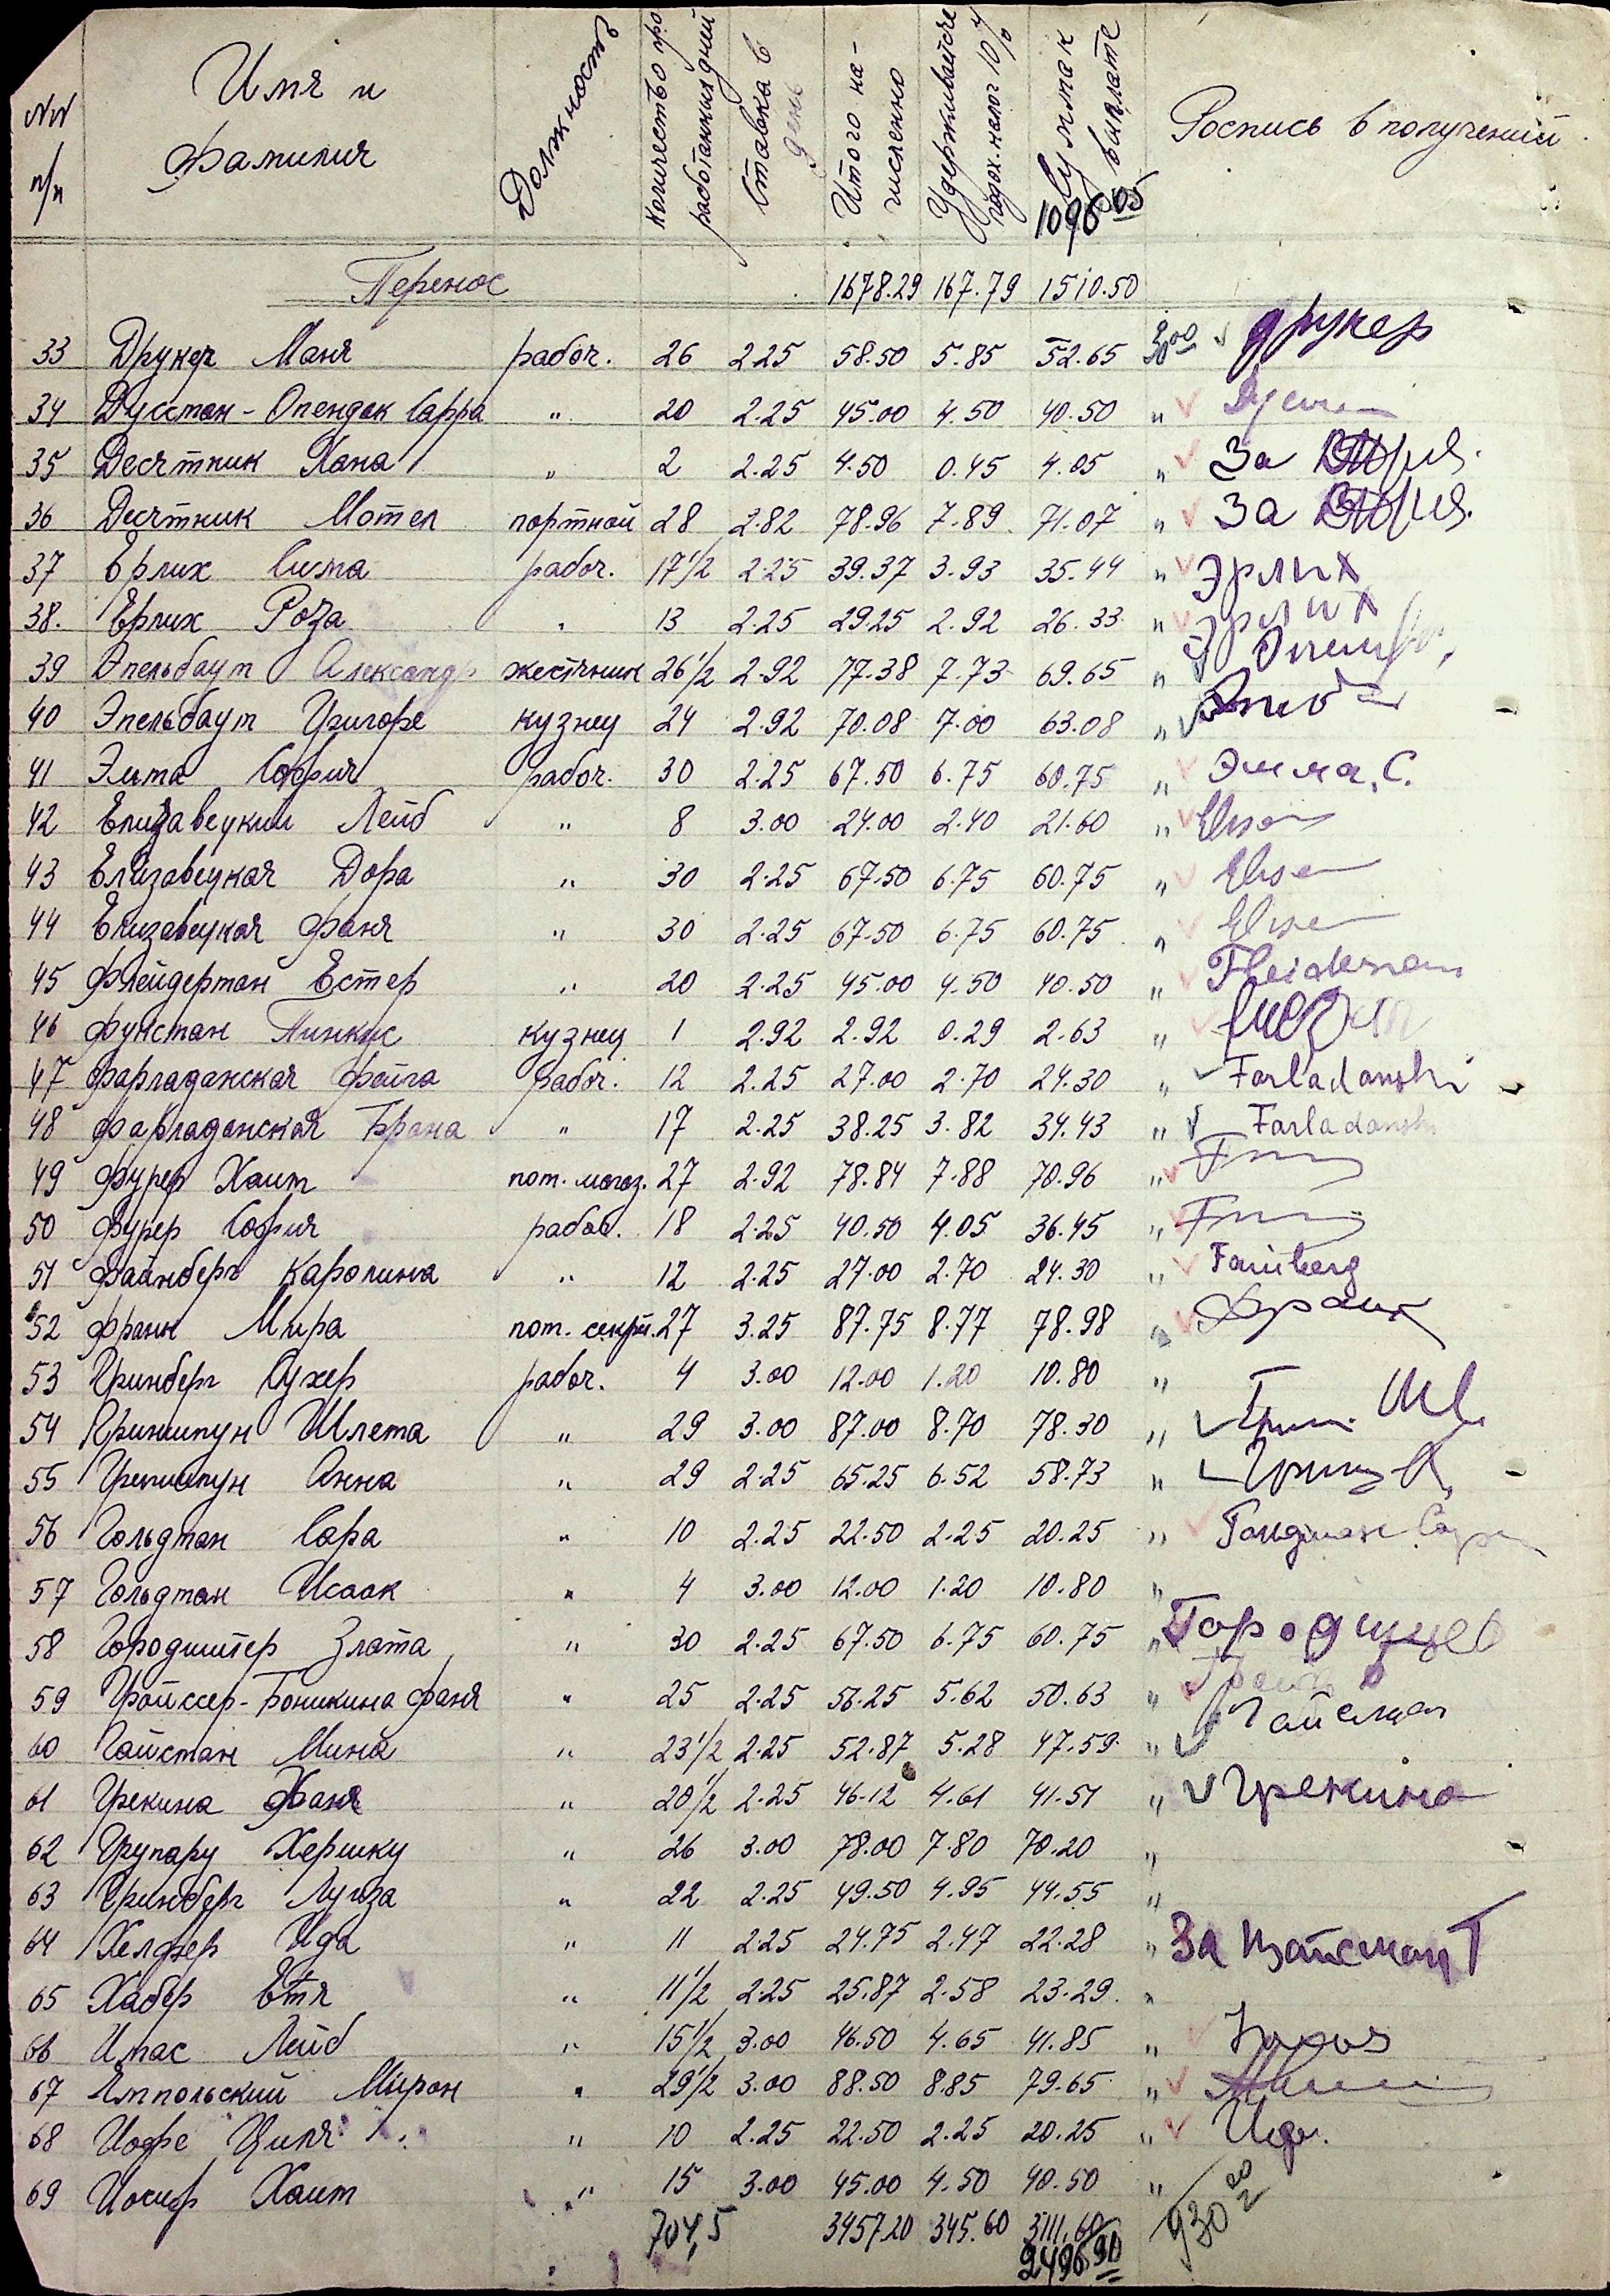 NN п/п Имя и фамилия Должность Количество проработанных дней Ставка в день Итого начисленно Удерживайся подох. налог 10% Сумма к выплате Роспись в получений
1096 05
Перенос 1678.29 167.79 1510.50
33 Друкер Маня рабоч. 26 2.25 58.50 5.85 52.65 Друкер
34 Дусман-Опендак Сарра " 20 2.25 45.00 4.50 40.50 "
35 Десятник Хана " 2 2.25 4.50 0.45 4.05 " За
36 Десятник Мотел портной 28 2.82 78.96 7.89 71.07 " За
37 Ерлих Сима рабоч. 17 1/2 2.25 39.37 3.93 35.44 " Эрлих
38. Ерлих Роза " 13 2.25 29.25 2.92 26.33 " Эрлих
39 Эпельбаум Александр жестяник 26 1/2 2.92 77.38 7.73 69.65 "
40 Эпельбаум Григоре кузнец 24 2.92 70.08 7.00 63.08 "
41 Эльма София рабоч. 30 2.25 67.50 6.75 60.75 " Элма. С.
42 Елизавецкий Лейб " 8 3.00 24.00 2.40 21.60 "
43 Елизавецкая Дора " 30 2.25 67.50 6.75 60.75 "
44 Елизавецкая Фаня " 30 2.25 67.50 6.75 60.75 "
45 Флейдерман Естер " 20 2.25 45.00 4.50 40.50 " Fleiderman
46 Фуксман Пинкус кузнец 1 2.92 2.92 0.29 2.63 "
47 Фарладанская Фейга рабоч. 12 2.25 27.00 2.70 24.30 " Farladanski
48 Фарладанская Брана " 17 2.25 38.25 3.82 34.43 " Farladanski
49 Фурер Хаим пом. магаз. 27 2.92 78.84 7.88 70.96 "
50 Фурер София рабоч. 18 2.25 40.50 4.05 36.45 "
51 Файнберг Каролина " 12 2.25 27.00 2.70 24.30 " Fainberg
52 Франк Мира пом. секр. 27 3.25 87.75 8.77 78.98 " Франк
53 Гринберг Сухер рабоч. 4 3.00 12.00 1.20 10.80 "
54 Гриншпун Шлема " 29 3.00 87.00 8.70 78.30 "
55 Гриншпун Анна " 29 2.25 65.25 6.52 58.73 "
56 Гольдман Сара " 10 2.25 22.50 2.25 20.25 " Голдман Сара
57 Гольдман Исаак " 4 3.00 12.00 1.20 10.80 "
58 Городиштер Злата " 30 2.25 67.50 6.75 60.75 "
59 Гройссер-Боникина Фаня " 25 2.25 56.25 5.62 50.63 "
60 Гойсман Мина " 23 1/2 2.25 52.87 5.28 47.59 " Гайсман
61 Грекина Фаня " 20 1/2 2.25 46.12 4.61 41.51 " Грекина
62 Групару Хершку " 26 3.00 78.00 7.80 70.20 "
63 Гринберг Луиза " 22 2.25 49.50 4.95 44.55 "
64 Хелфер Ида " 11 2.25 24.75 2.47 22.28 " За
65 Хабер Етя " 11 1/2 2.25 25.87 2.58 23.29 "
66 Имас Лейб " 15 1/2 3.00 46.50 4.65 41.85 "
67 Ямпольский Мирон " 29 1/2 3.00 88.50 8.85 79.65 "
68 Иофе Циля " 10 2.25 22.50 2.25 20.25 " Иоф.
69 Иосиф Хаим " 15 3.00 45.00 4.50 40.50 "
704,5 3457.20 345.60 3111.60
2496 90